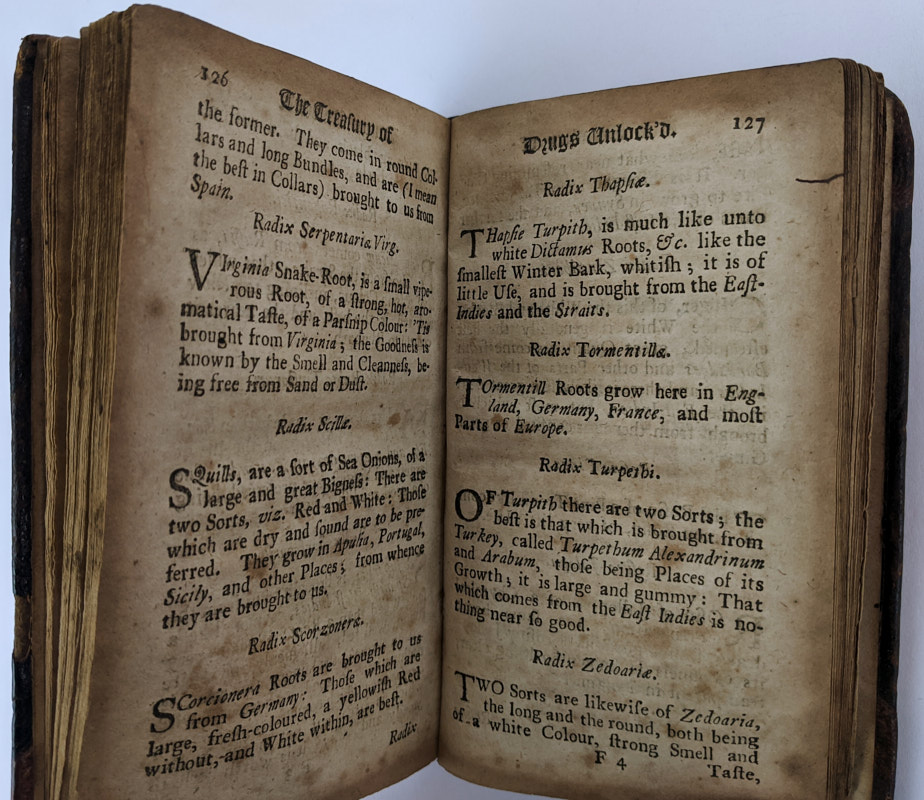 126
The Treaſury of
the former. They come in round Col-
lars and long Bundles, and are (I mean
the beſt in Collars) brought to us from
Spain.
Radix Serpentariæ Virg.
VIrginia Snake-Root, is a ſmall vipe-
rous Root, of a ſtrong, hot, aro-
matical Taſte, of a Parſnip Colour: 'Tis
brought from Virginia; the Goodneſs is
known by the Smell and Cleanneſs, be-
ing free from Sand or Duſt.
Radix Scillæ.
SQuills, are a ſort of Sea Onions, of a
large and great Bigneſs: There are
two Sorts, viz. Red and White: Thoſe
which are dry and ſound are to be pre-
ferred. They grow in Apulia, Portugal,
Sicily, and other Places; from whence
they are brought to us.
Radix Scorzoneræ.
SCorcionera Roots are brought to us
from Germany: Thoſe which are
large, freſh-coloured, a yellowiſh Red
without, and White within, are beſt.
Radix
Drugs Unlock'd.
127
Radix Thapſiæ.
THapſie Turpith, is much like unto
white Dictamus Roots, &c. like the
ſmalleſt Winter Bark, whitiſh; it is of
little Uſe, and is brought from the Eaſt-
Indies and the Straits.
Radix Tormentillæ.
TOrmentill Roots grow here in Eng-
land, Germany, France, and moſt
Parts of Europe.
Radix Turpethi.
OF Turpith there are two Sorts; the
beſt is that which is brought from
Turkey, called Turpethum Alexandrinum
and Arabum, thoſe being Places of its
Growth; it is large and gummy: That
which comes from the Eaſt Indies is no-
thing near ſo good.
Radix Zedoariæ.
TWO Sorts are likewiſe of Zedoaria,
the long and the round, both being
of a white Colour, ſtrong Smell and
F 4
Taſte,